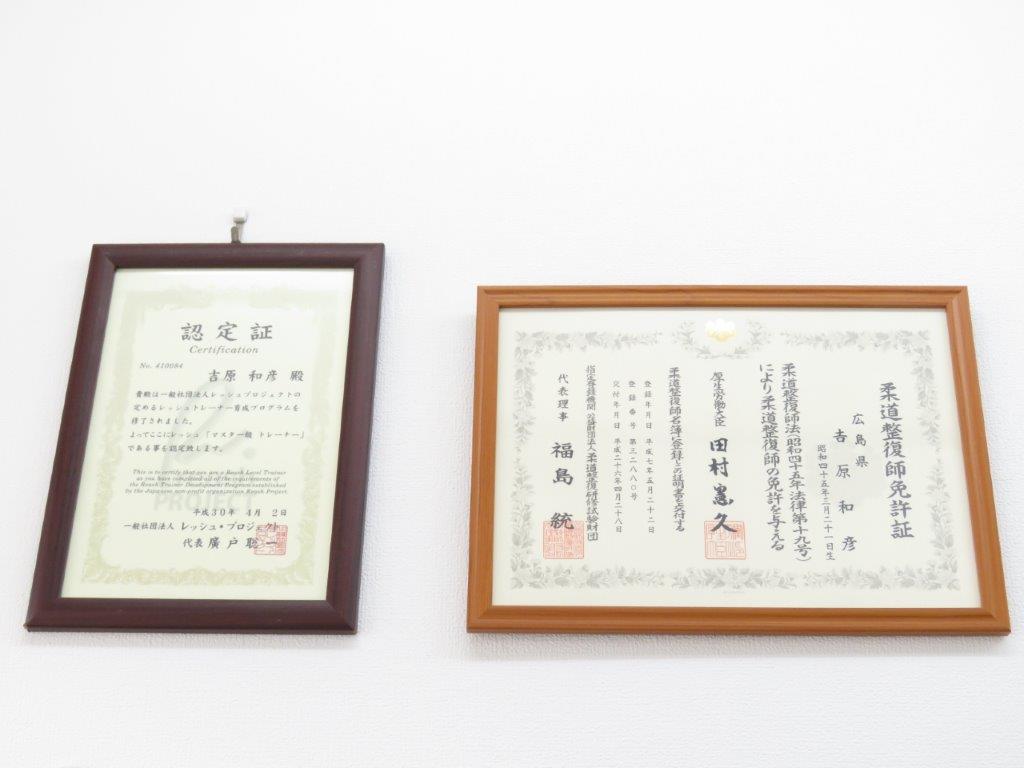 認定証
Certification
No. 410084
吉原 和彦 殿
貴殿は一般社団法人レッシュプロジェクトの
定めるレッシュトレーナー育成プログラムを
修了されました。
よってここにレッシュ「マスター級 トレーナー」
である事を認定致します。
This is to certify that you are a Reash Level Trainer
as you have completed all of the requirements of
the Reash Trainer Development Program established
by the Japanese non-profit organization Reash Project.
PROJECT
平成30年 4月 2日
一般社団法人 レッシュ・プロジェクト
代表 廣戸 聡一
柔道整復師免許証
広島県
吉原和彦
昭和四十五年三月二十一日生
柔道整復師法(昭和四十五年法律第十九号)
により柔道整復師の免許を与える
厚生労働大臣 田村憲久
柔道整復師名簿に登録しこの証明書を交付する
登録年月日 平成七年五月二十二日
登録番号 第三二八八〇号
交付年月日 平成二十六年四月二十八日
指定登録機関 公益財団法人柔道整復研修試験財団
代表理事 福島統